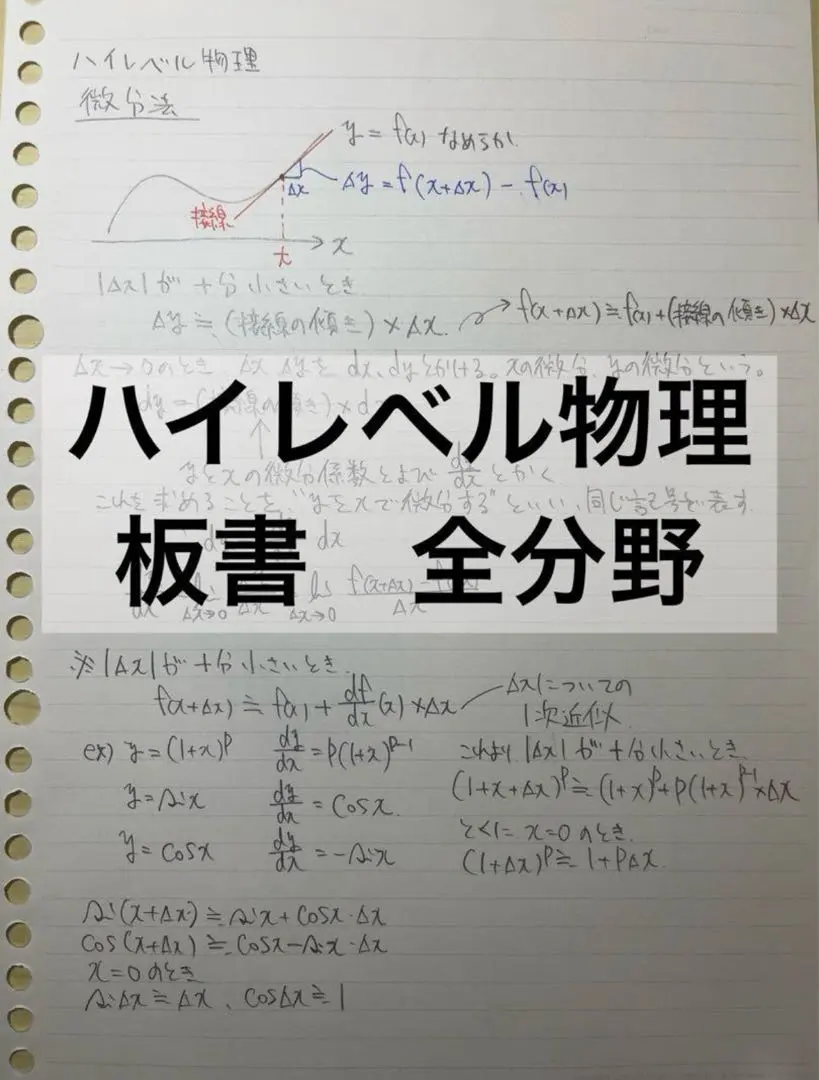 ハイレベル物理
微分法
y = f(x) なめらか
Δx
Δy = f(x+Δx) - f(x)
接線
x
x
|Δx| が十分小さいとき
Δy ≒ (接線の傾き) × Δx
f(x+Δx) ≒ f(x) + (接線の傾き) × Δx
Δx→0 のとき Δx, Δyを dx, dyとかける。xの微分、yの微分という。
dy = (接線の傾き) × d
ハイレベル物理
yとxの微分係数とよび dy/dx とかく
これを求めることを、"yをxで微分する"といい、同じ記号で表す
dx
板書 全分野
Δx→0 Δx Δx→0 f(x+Δx) - Δx
※ |Δx| が十分小さいとき
f(x+Δx) ≒ f(x) + df/dx (x) × Δx
Δxについての
1次近似
ex) y = (1+x)^p dy/dx = p(1+x)^{p-1}
y = sin x dy/dx = cos x
y = cos x dy/dx = -sin x
これより |Δx| が十分小さいとき
(1+x+Δx)^p ≒ (1+x)^p + p(1+x)^{p-1} × Δx
とくに x=0 のとき
(1+Δx)^p ≒ 1+pΔx
sin(x+Δx) ≒ sin x + cos x · Δx
cos(x+Δx) ≒ cos x - sin x · Δx
x=0 のとき
sin Δx ≒ Δx 、 cos Δx ≒ 1